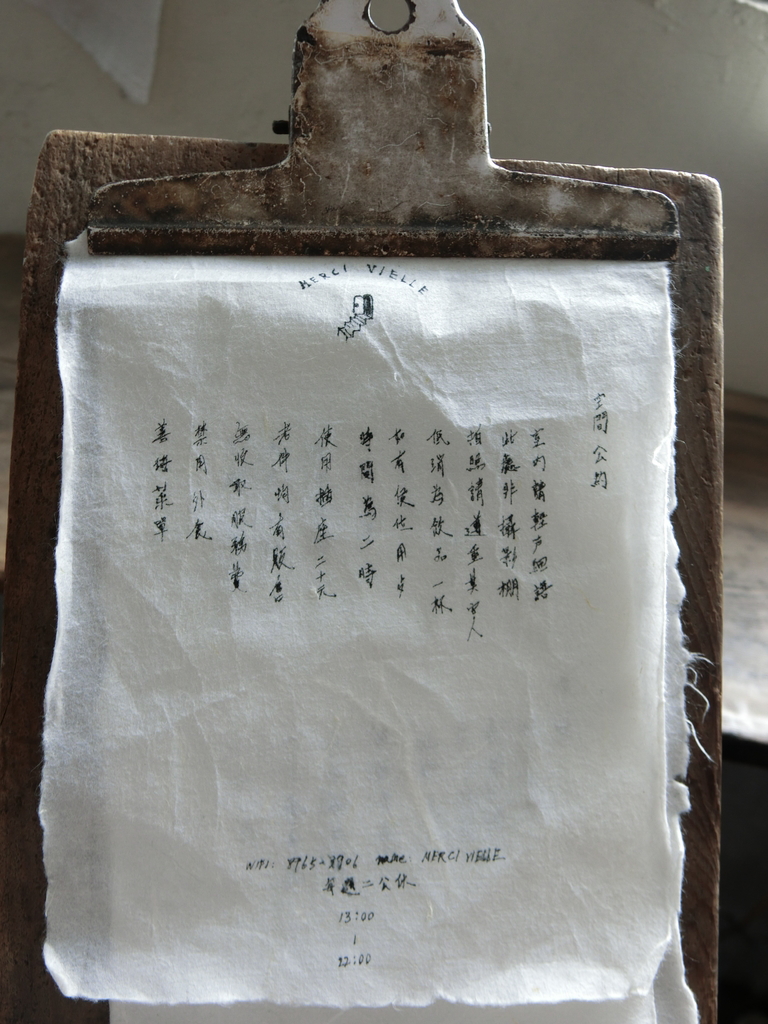 MERCI VIELLE
空間公約
室內請輕声細語
此處非攝影棚
拍照請遵重其他人
低消為飲品一杯
如有後位用歺
時間為二時
使用插座二十元
老件均有販售
無收取服務費
禁用外食
善待菜單
WIFI: 8965-8806 name: MERCI VIELLE
每週二公休
13:00
|
22:00